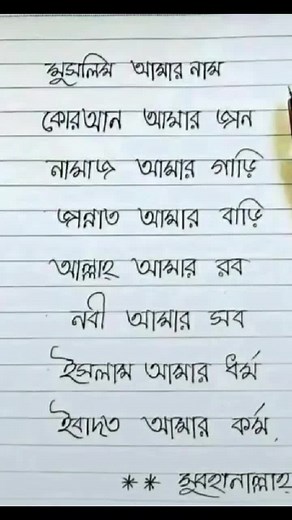 মুসলিম আমার নাম
কোরআন আমার জান
নামাজ আমার গাড়ি
জান্নাত আমার বাড়ি
আল্লাহ্ আমার রব
নবী আমার সব
ইসলাম আমার ধর্ম
ইবাদত আমার কর্ম,
** সুবহানাল্লাহ্